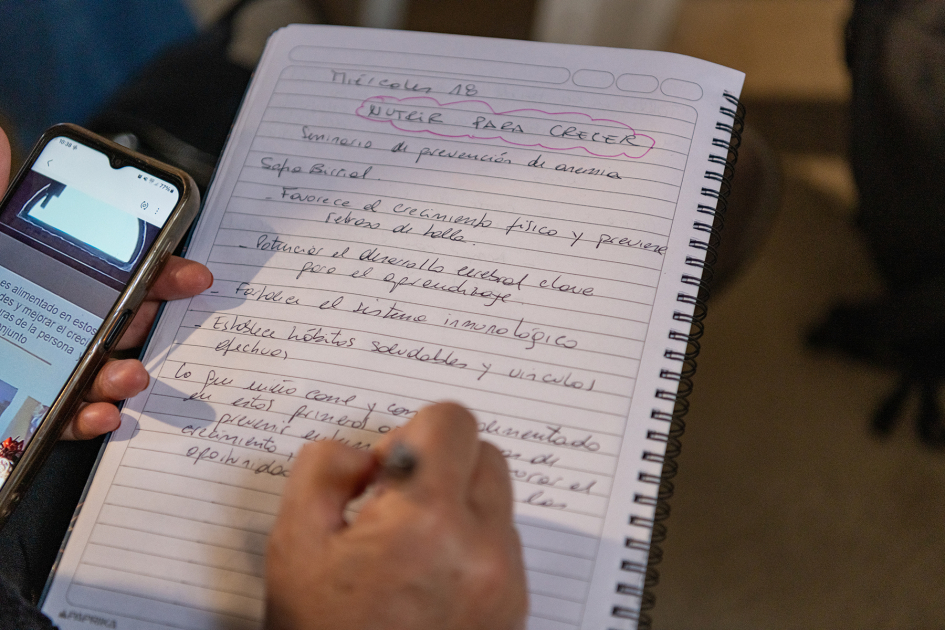 Miércoles 18
NUTRIR PARA CRECER
Seminario de prevención de anemia
Sofia
- Favorece el crecimiento físico y previene
retraso de talla.
- Potenciar el desarrollo cerebral clave
para el aprendizaje.
- Fortalece el sistema inmunológico
- Establece hábitos saludables y vinculos
afectivos
Lo que niño come y alimentado
en estos primeros de
prevenir el
crecimiento, las
oportunidad
PAPRIKA
10:38
77%
es alimentado en estos
des y mejorar el creci
uras de la persona y
njunto